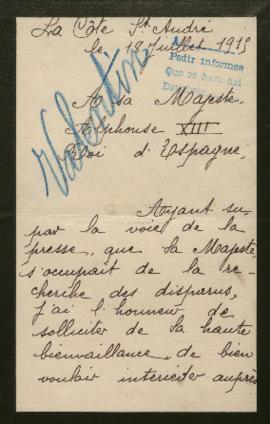 La Côte St André
le 18 Juillet 1915
Pedir informes
Que se hace así
A sa Majeste
Alphonse XIII
Roi d'Espagne,
Valentin
Ayant su
par la voie de la
presse, que sa Majeste,
s'occupait de la re-
cherche des disparus,
j'ai l'honneur de
solliciter de sa haute
bienvaillance, de bien
vouloir interceder auprès